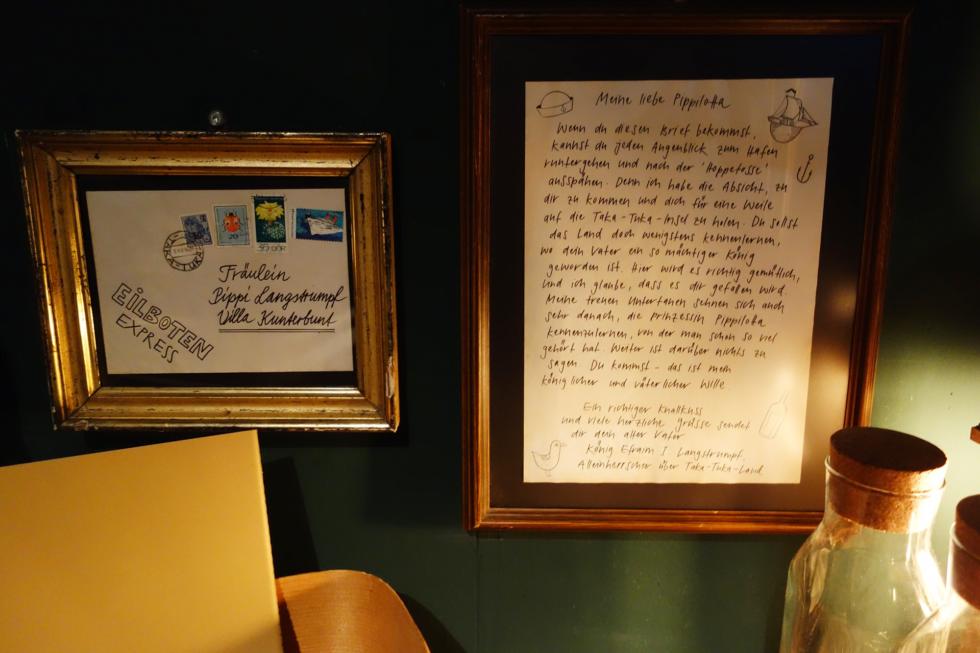 20
30 DDR
Fräulein
Pippi Langstrumpf
Villa Kunterbunt
EILBOTEN
EXPRESS
Meine liebe Pippilotta
Wenn du diesen Brief bekommst,
kannst du jeden Augenblick zum Hafen
runtergehen und nach der 'Hoppetosse'
ausspähen. Denn ich habe die Absicht, zu
dir zu kommen und dich für eine Weile
auf die Taka-Tuka-Insel zu holen. Du sollst
das Land doch wenigstens kennenlernen,
wo dein Vater ein so mächtiger König
geworden ist. Hier wird es richtig gemütlich,
und ich glaube, dass es dir gefallen wird.
Meine treuen Untertanen sehnen sich auch
sehr danach, die Prinzessin Pippilotta
kennenzulernen, von der man schon so viel
gehört hat. Weiter ist darüber nichts zu
sagen. Du kommst - das ist mein
königlicher und väterlicher Wille.
Ein richtiger Knallkuss
und viele herzliche Grüsse sendet
dir dein alter Vater
König Efraim I Langstrumpf.
Alleinherrscher über Taka-Tuka-Land